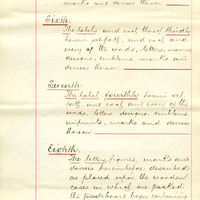 marks and devices thereon
Sixth.
The labels and each thirdly
herein set forth, and each and
every of the words, letters, names
devices, emblems, marks and
devices thereon
Seventh.
The label fourthly herein set
forth, and each and every of the
words, letters, devices, emblems,
imprints, marks and devices
thereon
Eighth.
The letters, figures, marks and
devices hereinbefore described
as placed upon the wooden
case in which are packed
the pasteboard boxes containing